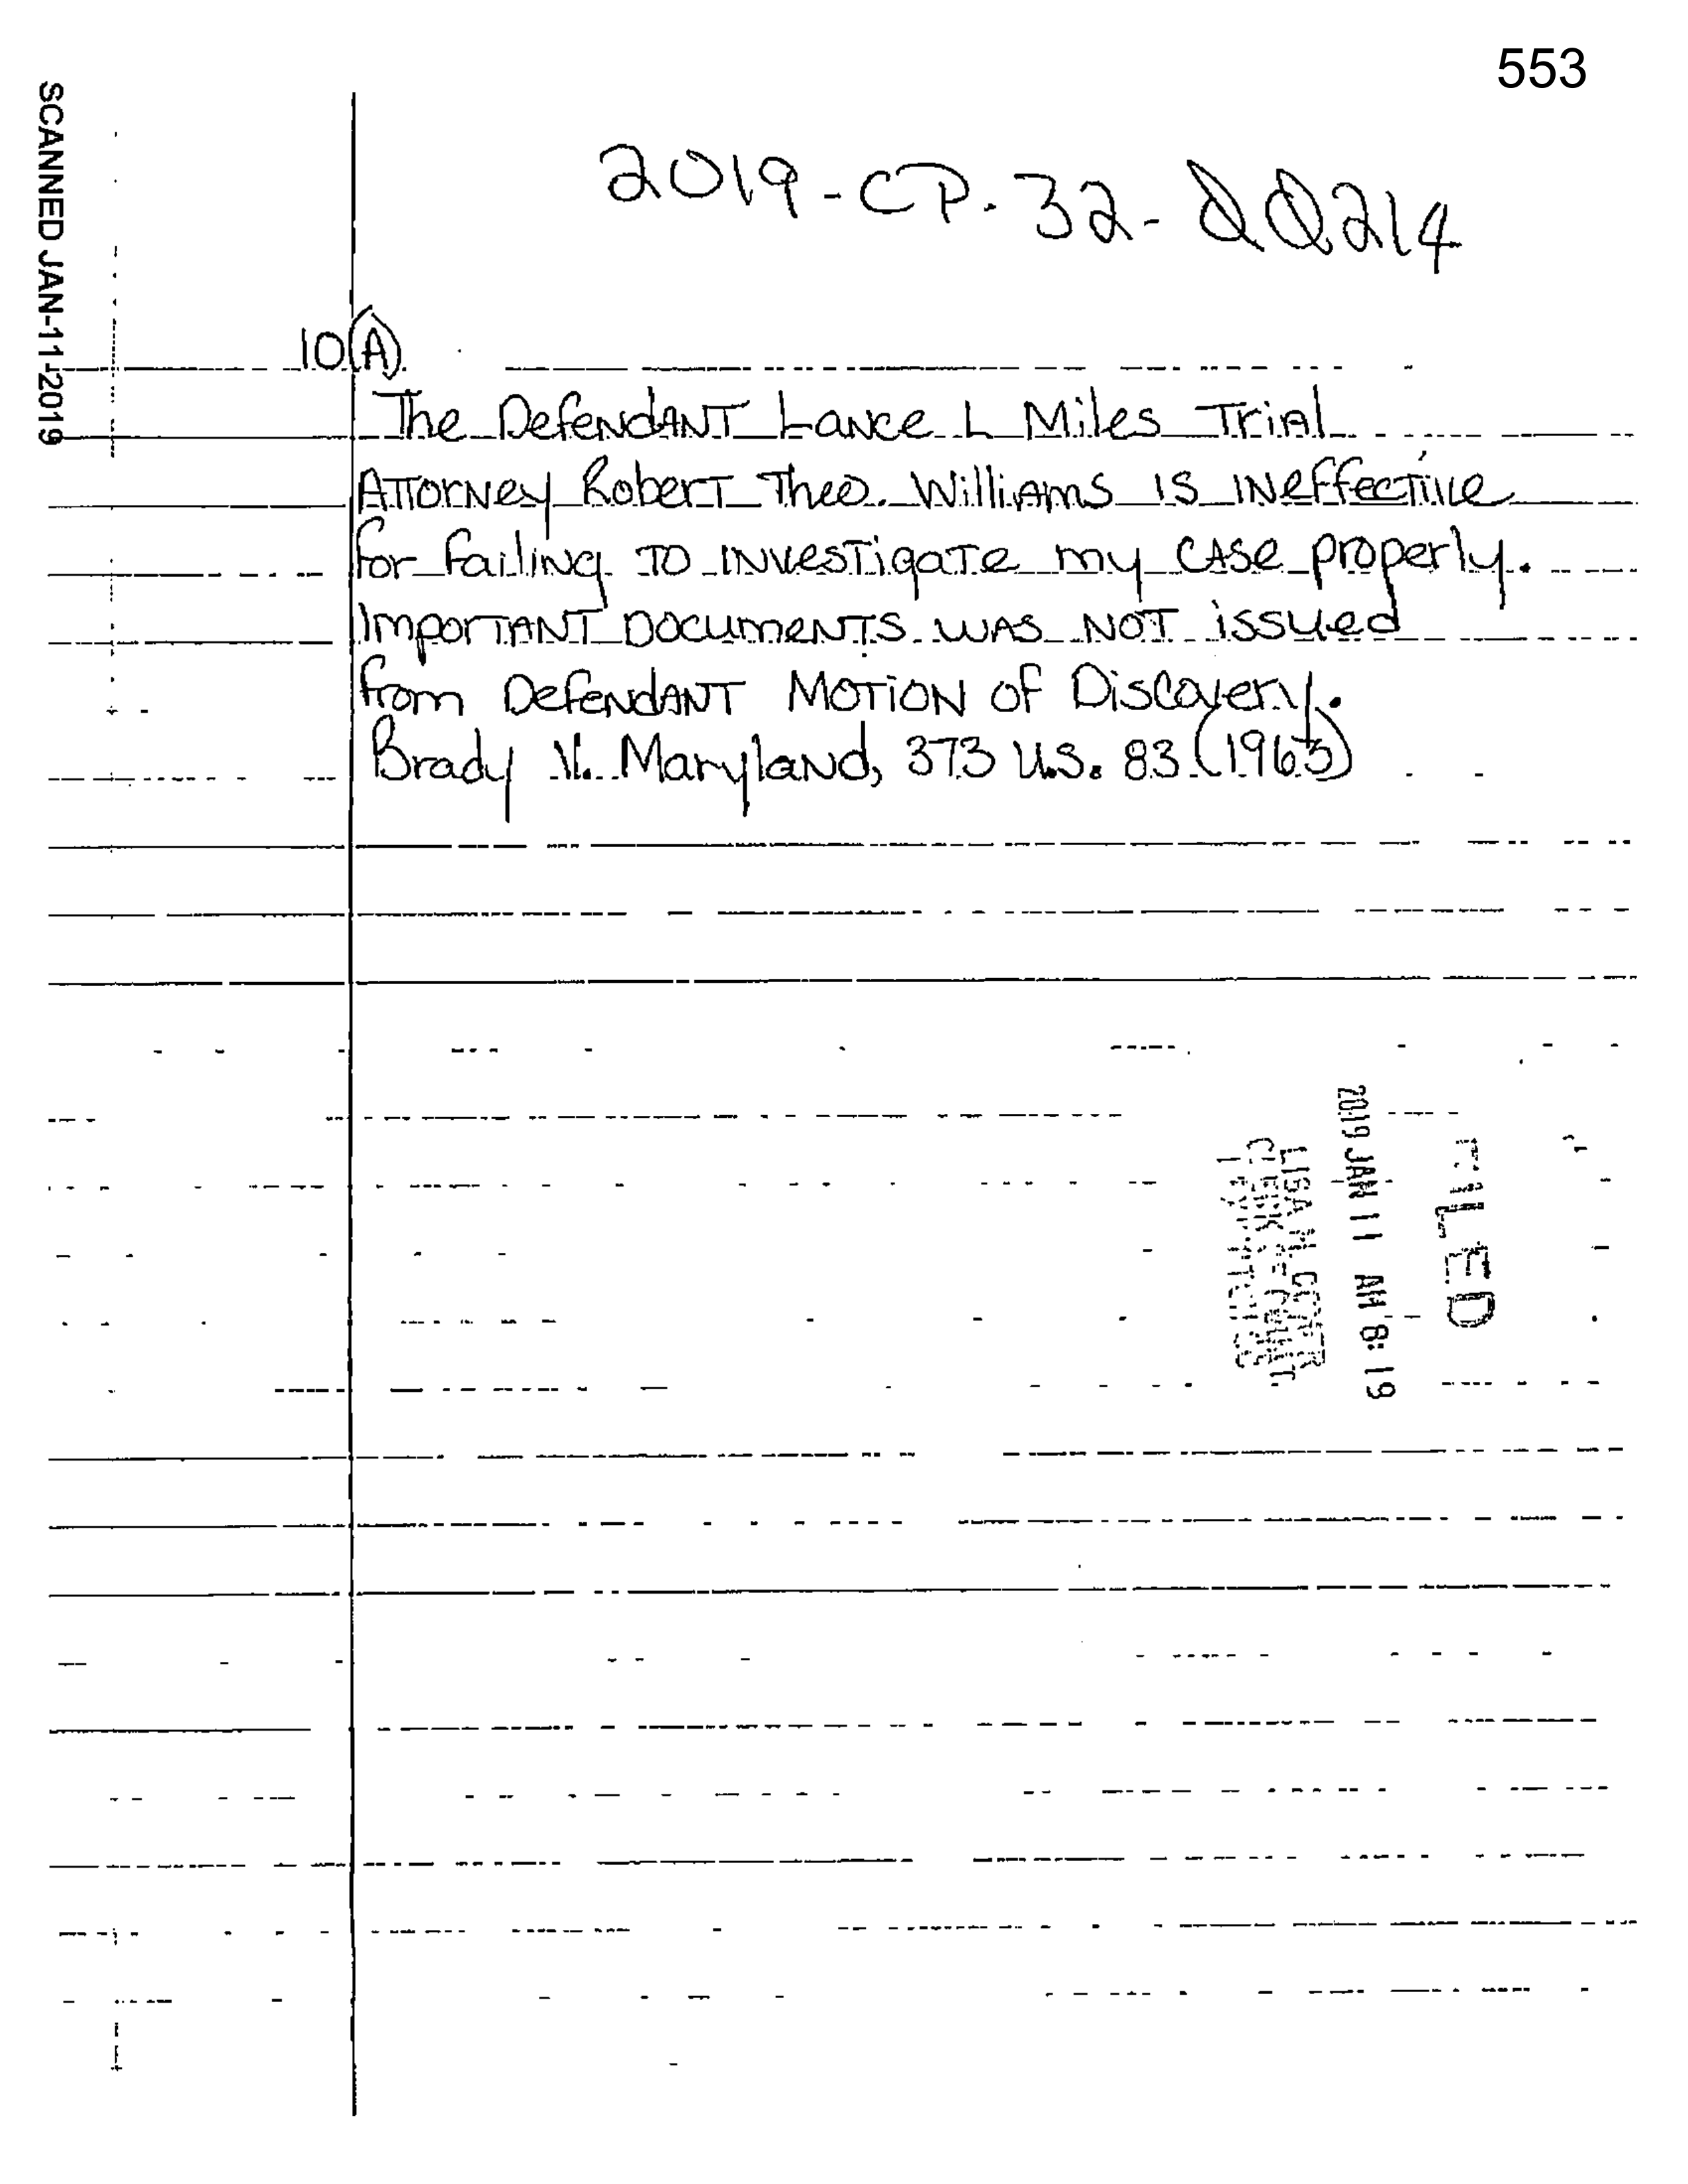 553
SCANNED JAN-11-2019
2019-CP-32-00214
10(A)
The Defendant Lance L Miles Trial
Attorney Robert Theo. Williams is ineffective
for failing to investigate my case properly.
Important Documents was not issued
from Defendant Motion of Discovery.
Brady V. Maryland, 373 U.S. 83 (1963)
FILED
2019 JAN 11 AM 8:19
LISA M.
CLERK OF COURT